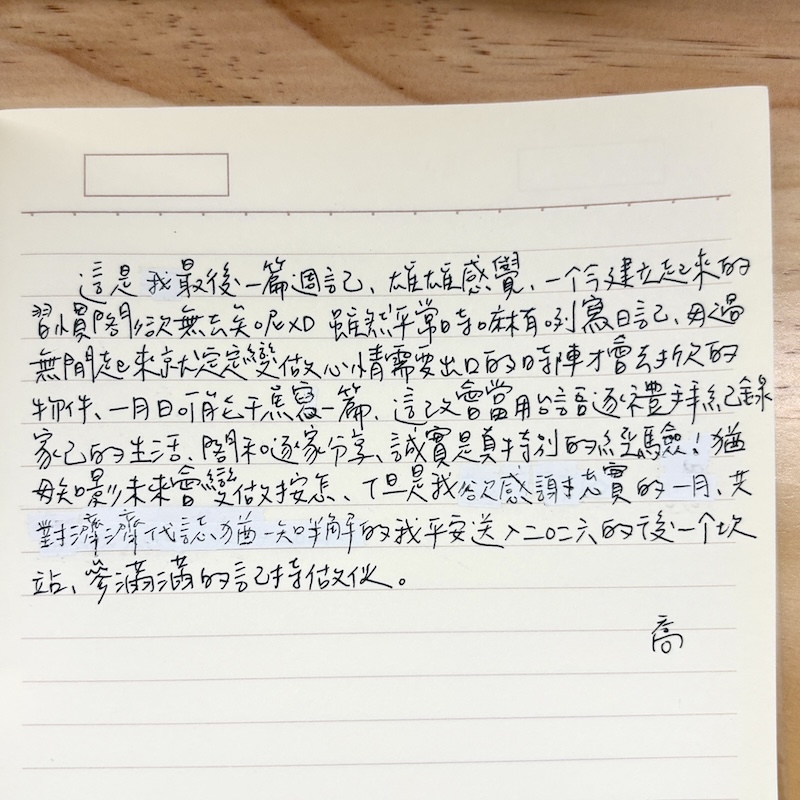 這是我最後一篇週記、雄雄感覺、一个今建立起來的
習慣閣欲無去矣呢XD 雖然平常時嘛有咧寫日記、毋過
無閒起來就定定變做心情需要出口的時陣才會去掀的
物件、一月日可能干焦寫一篇、這改會當用台語逐禮拜紀錄
家己的生活、閣和逐家分享、誠實是真特別的經驗！猶
毋知影未來會變做按怎、但是我欲感謝實的一月、共
對濟濟代誌猶一知半解的我平安送入二〇二六的後一个坎
站、參滿滿的記持做伙。
喬